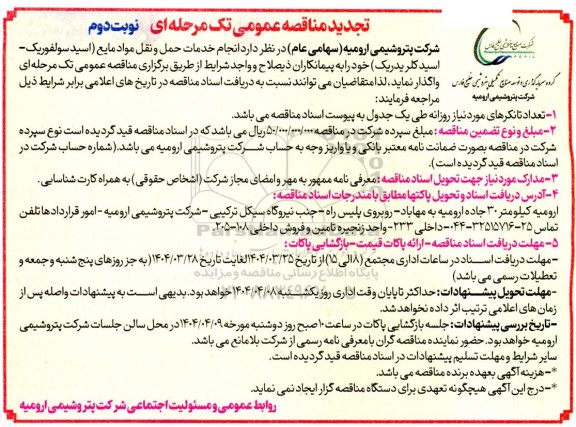 تجدید مناقصه عمومی تک مرحله ای نوبت دوم
گروه سرمایه گذاری و توسعه صنایع تکمیلی پتروشیمی خلیج فارس
شرکت پتروشیمی ارومیه
شرکت پتروشیمی ارومیه (سهامی عام) در نظر دارد انجام خدمات حمل و نقل مواد مایع (اسید سولفوریک-
اسید کلریدریک) خود را به پیمانکاران ذیصلاح و واجد شرایط از طریق برگزاری مناقصه عمومی تک مرحله ای
واگذار نماید، لذا متقاضیان می توانند نسبت به دریافت اسناد مناقصه در تاریخ های اعلامی برابر شرایط ذیل
مراجعه فرمایند:
۱-تعداد تانکرهای مورد نیاز روزانه طی یک جدول به پیوست اسناد مناقصه می باشد.
۲-مبلغ و نوع تضمین مناقصه: مبلغ سپرده شرکت در مناقصه ۵۰/۰۰۰/۰۰۰/۰۰۰ ریال می باشد که در اسناد مناقصه قید گردیده است نوع سپرده
شرکت در مناقصه بصورت ضمانت نامه معتبر بانکی و یا واریز وجه به حساب شرکت پتروشیمی ارومیه می باشد.(شماره حساب شرکت در
اسناد مناقصه قید گردیده است).
۳-مدارک مورد نیاز جهت تحویل اسناد مناقصه: معرفی نامه ممهور به مهر و امضای مجاز شرکت (اشخاص حقوقی) به همراه کارت شناسایی.
۴-آدرس دریافت اسناد و تحویل پاکتها مطابق با مندرجات اسناد مناقصه:
ارومیه کیلومتر ۳۰ جاده ارومیه به مهاباد- روبروی پلیس راه - جنب نیروگاه سیکل ترکیبی - شرکت پتروشیمی ارومیه - امور قراردادها تلفن
تماس ۲۵-۳۲۵۱۵۷۱۶-۰۴۴ داخلی ۲۳۳- واحد زنجیره تامین و فروش داخلی ۱۰۸-۲۰۵
۵-مهلت دریافت اسناد مناقصه - ارائه پاکات قیمت - بازگشایی پاکات:
-مهلت دریافت اسناد در ساعات اداری مجتمع (۸ الی ۱۵) از تاریخ ۱۴۰۴/۰۳/۲۵ لغایت تاریخ ۱۴۰۴/۰۳/۲۸ (به جز روزهای پنج شنبه و جمعه و
تعطیلات رسمی می باشد)
-مهلت تحویل پیشنهادات: حداکثر تا پایان وقت اداری روز یکشنبه ۱۴۰۴/۰۴/۰۸ خواهد بود. بدیهی است به پیشنهادات واصله پس از
زمان های اعلامی ترتیب اثر داده نخواهد شد.
-تاریخ بررسی پیشنهادات: جلسه بازگشایی پاکات در ساعت ۱۰ صبح روز دوشنبه مورخه ۱۴۰۴/۰۴/۰۹ در محل سالن جلسات شرکت پتروشیمی
ارومیه خواهد بود. حضور نماینده مناقصه گران با معرفی نامه رسمی از شرکت بلامانع می باشد.
سایر شرایط و مهلت تسلیم پیشنهادات در اسناد مناقصه قید گردیده است.
*-هزینه آگهی بعهده برنده مناقصه می باشد.
*-درج این آگهی هیچگونه تعهدی برای دستگاه مناقصه گزار ایجاد نمی نماید.
روابط عمومی و مسئولیت اجتماعی شرکت پتروشیمی ارومیه